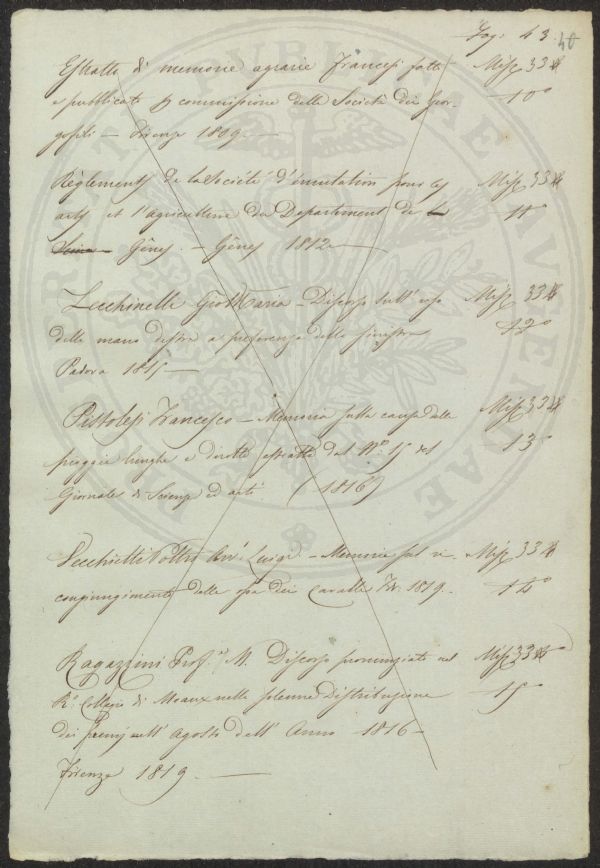 Fog: 43. 40
Estratto di memorie agrarie Francesi fatto Misc. 33
e pubblicato p commissione della Società dei Geor- 10°
gofili — Firenze 1809. —
Règlement de la Société d'émulation pour les Misc. 33
arts et l'agriculture du Departement de la 11°
Seine Gênes. — Gênes 1812 —
Zecchinelli Gio Maria — Discorso sull' uso Misc. 33
della mano destra a preferenza della sinistra 12°
Padova 1815 —
Pistolesi Francesco — Memoria sulla causa delle Misc. 33
pioggie lunghe e dirotte estratta dal N° 15 del 13°
Giornale di Scienze ed arti (1816)
Luigi — Memoria sul ri- Misc. 33
congiungimento delle ossa dei Cavalli Fir. 1819. — 14°
Ragazzini Prof. M. Discorso pronunziato nel Misc. 33
R. Collegio di Meaux nella solenne Distribuzione 15°
dei Premj nell' Agosto dell' Anno 1816 —
Firenze 1819. —